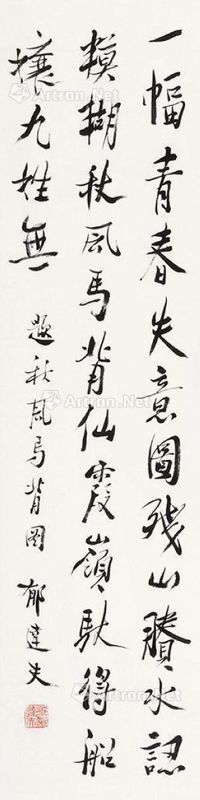 一幅青春失意圖殘山賸水認
模糊秋風馬背仙霞嶺馱得船
孃九姓無 題秋風馬背图 郁達夫